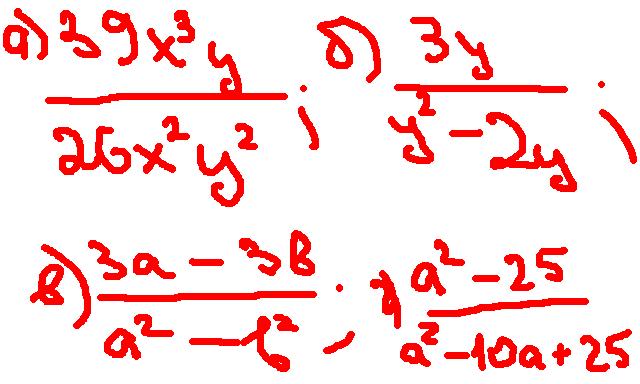 а) 39x³y / 26x²y² ; б) 3y / y² - 2y ;
в) 3a - 3b / a² - b² ; г) a² - 25 / a² - 10a + 25